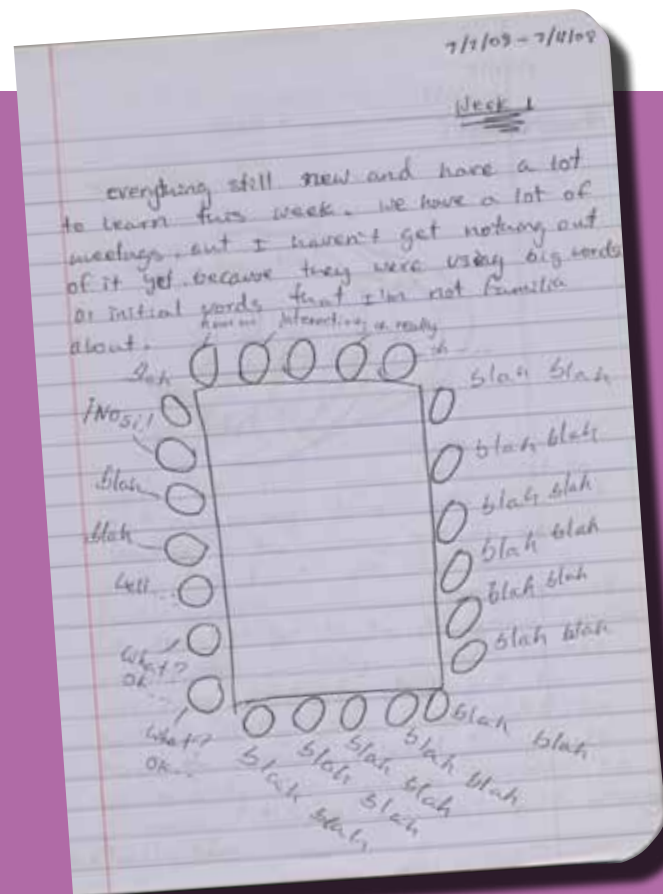 7/7/08 - 7/11/08
Week 1
everything still new and have a lot
to learn this week. we have a lot of
meetings, but I haven't get nothing out
of it yet because they were using big words
or initial words that I'm not familia
about.
Interesting really
blah
blah blah
blah blah
Blah
blah blah
blah
blah blah
well...
blah blah
blah blah
What?
Ok...
What?
Ok...
blah blah
blah blah
blah blah
blah blah
blah blah